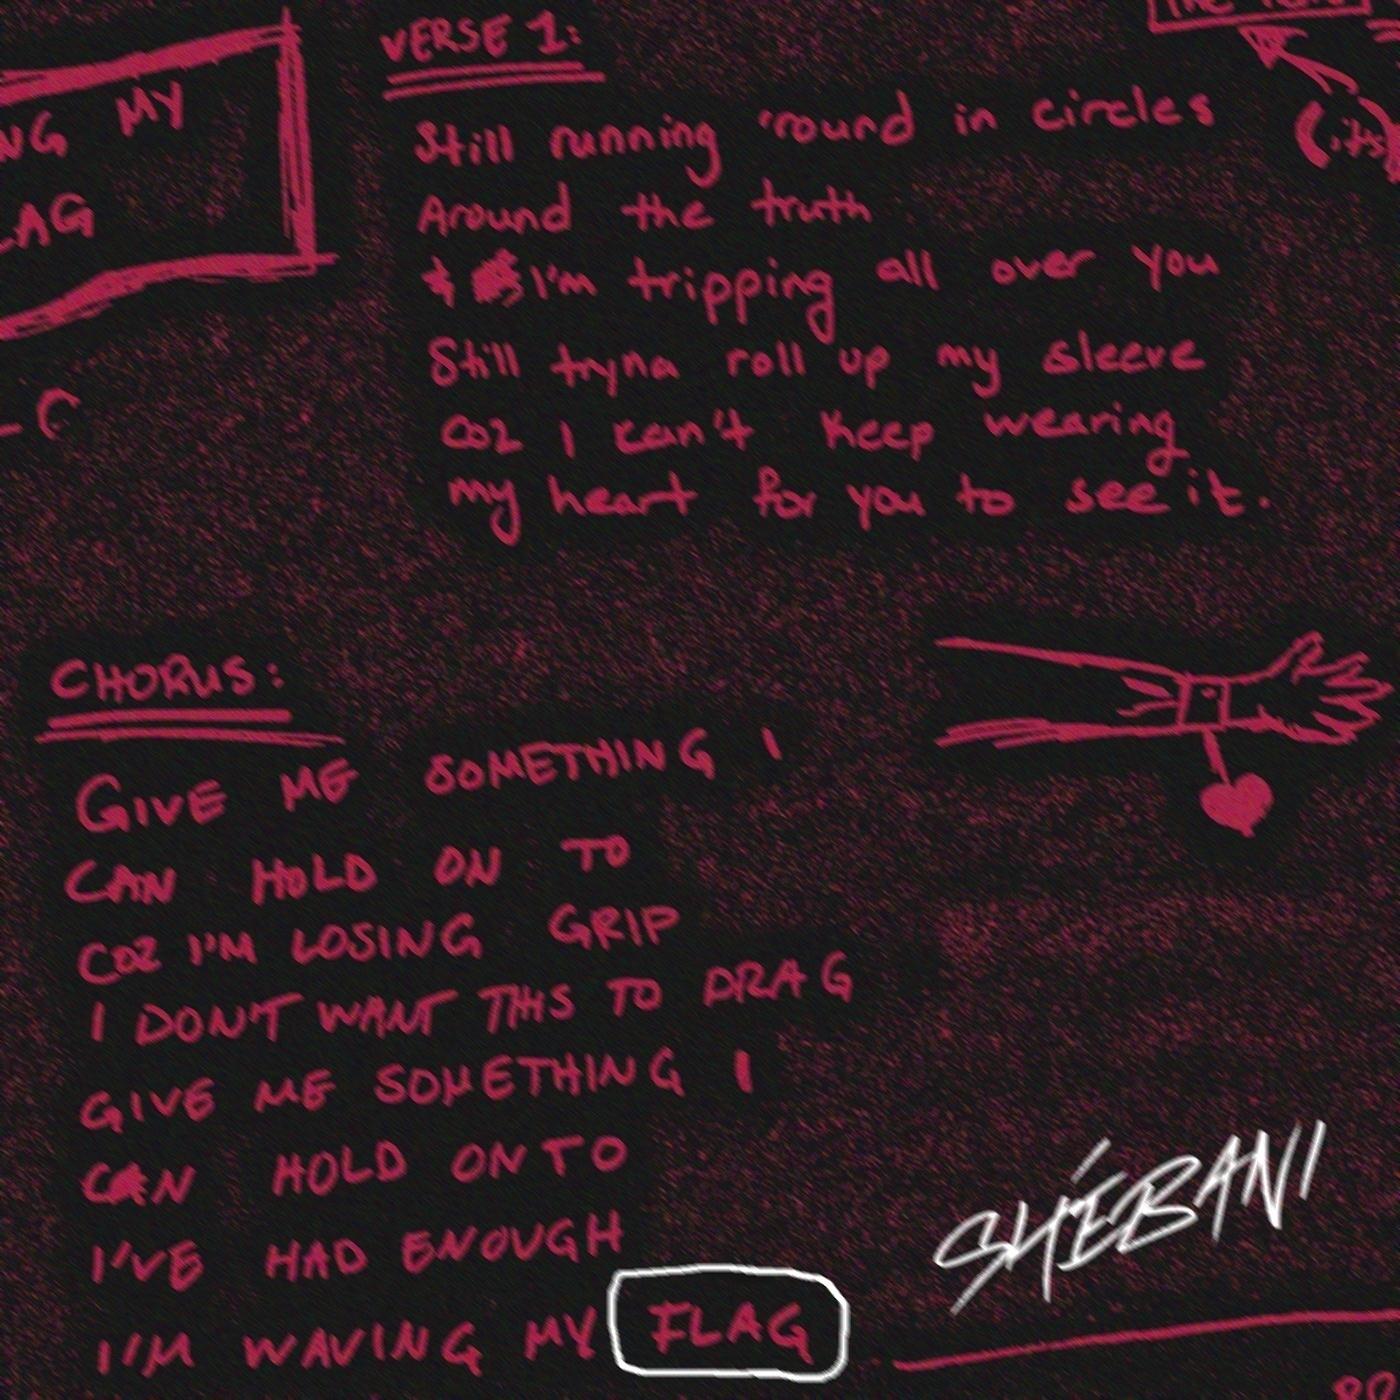 MY
VERSE 1:
Still running 'round in circles
Around the truth
& I'm tripping all over you
Still tryna roll up my sleeve
Coz I can't keep wearing
my heart for you to see it.
CHORUS:
GIVE ME SOMETHING I
CAN HOLD ON TO
COZ I'M LOSING GRIP
I DON'T WANT THIS TO DRAG
GIVE ME SOMETHING I
CAN HOLD ON TO
I'VE HAD ENOUGH
I'M WAVING MY FLAG
SHÉBANI